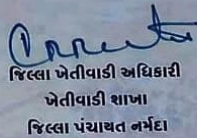 જિલ્લા ખેતીવાડી અધિકારી
ખેતીવાડી શાખા
જિલ્લા પંચાયત નર્મદા